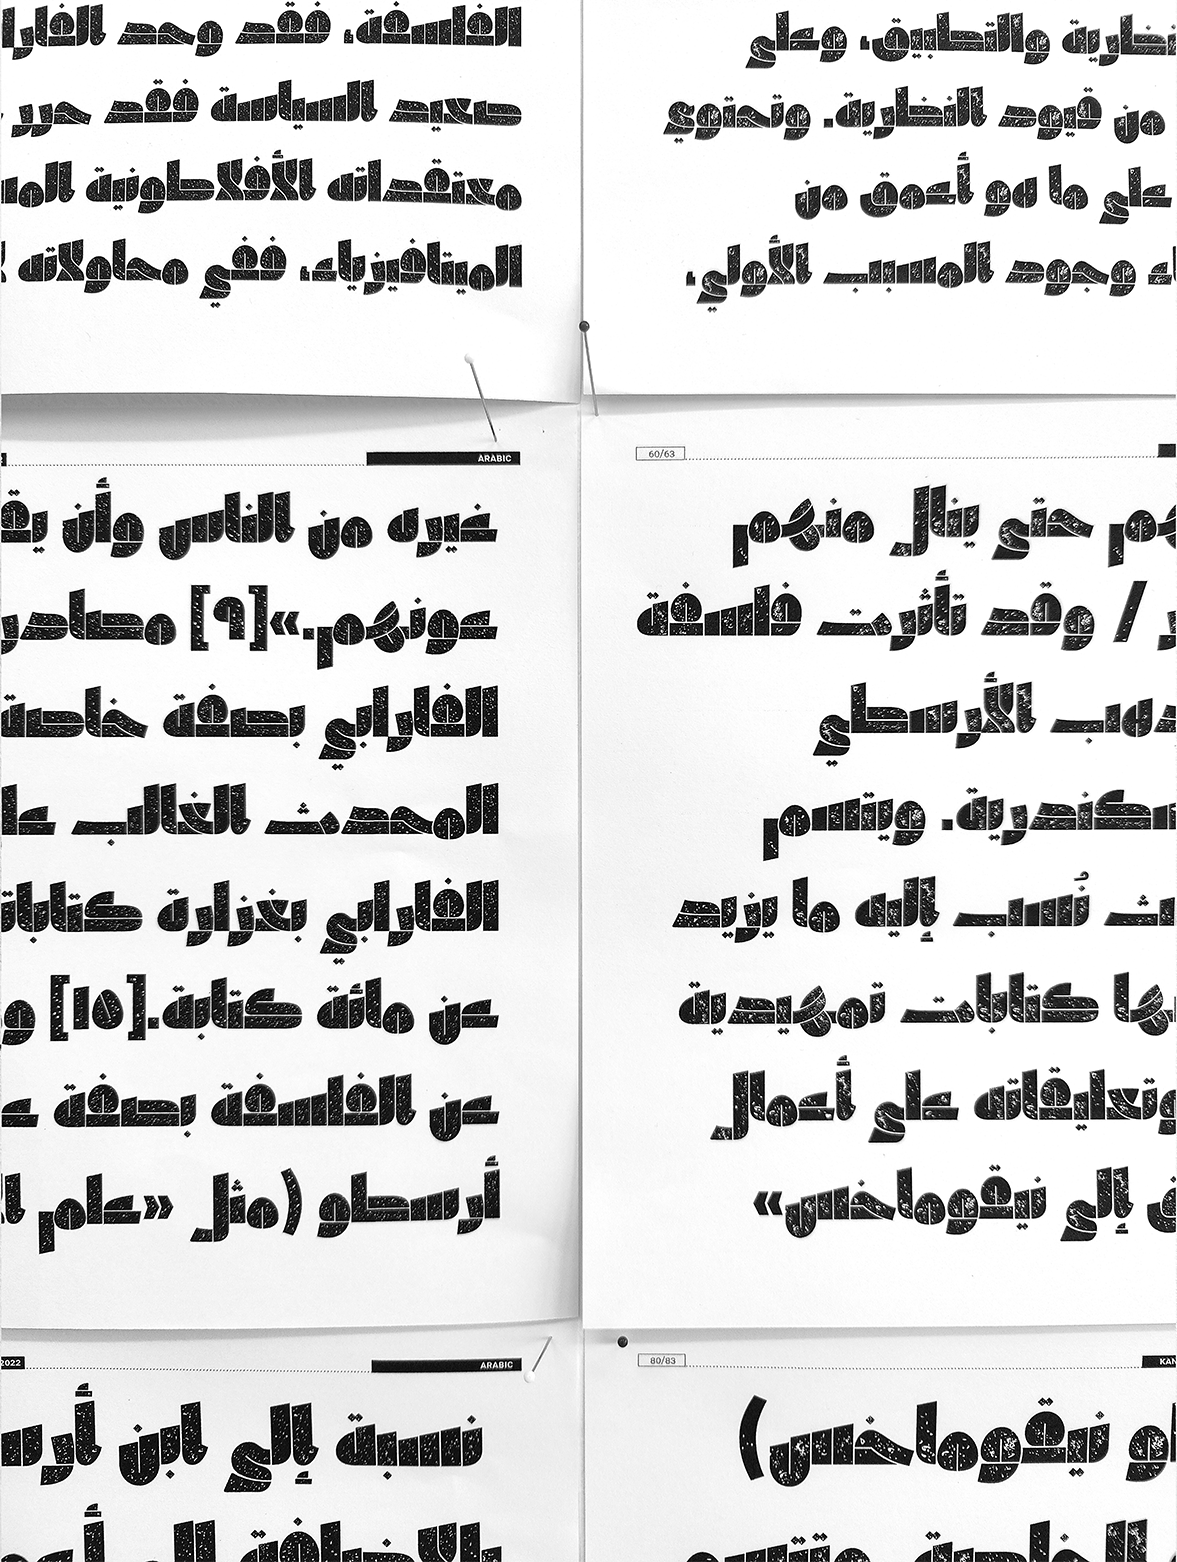 الفلسفة، فقد وحد
صعيد السياسة فقد حرر
معتقداته الأفلاطونية
الميتافيزياء، ففي محاولاته
والتطبيق، وعلي
من قيود النظرية. وتحتوي
علي ما هو أعمق من
وجود المسبب الأولي،
ARABIC
غيره من الناس وأن
عونهم.»[٩] مصادر
الفارابي بصفة خاصة
المحدث الغالب
الفارابي بغزارة
عن مائة كتابة.[١٥]
عن الفلسفة بصفة
أرسطو (مثل «علم
60/63
حتي ينال منهم
/ وقد تأثرت فلسفة
الأرسطي
ويتسم
نُسب إليه ما يزيد
كتابات تمهيدية
وتعليقاته علي أعمال
إلي نيقوماخس»
2022 ARABIC
نسبة إلي ابن
80/83
نيقوماخس)